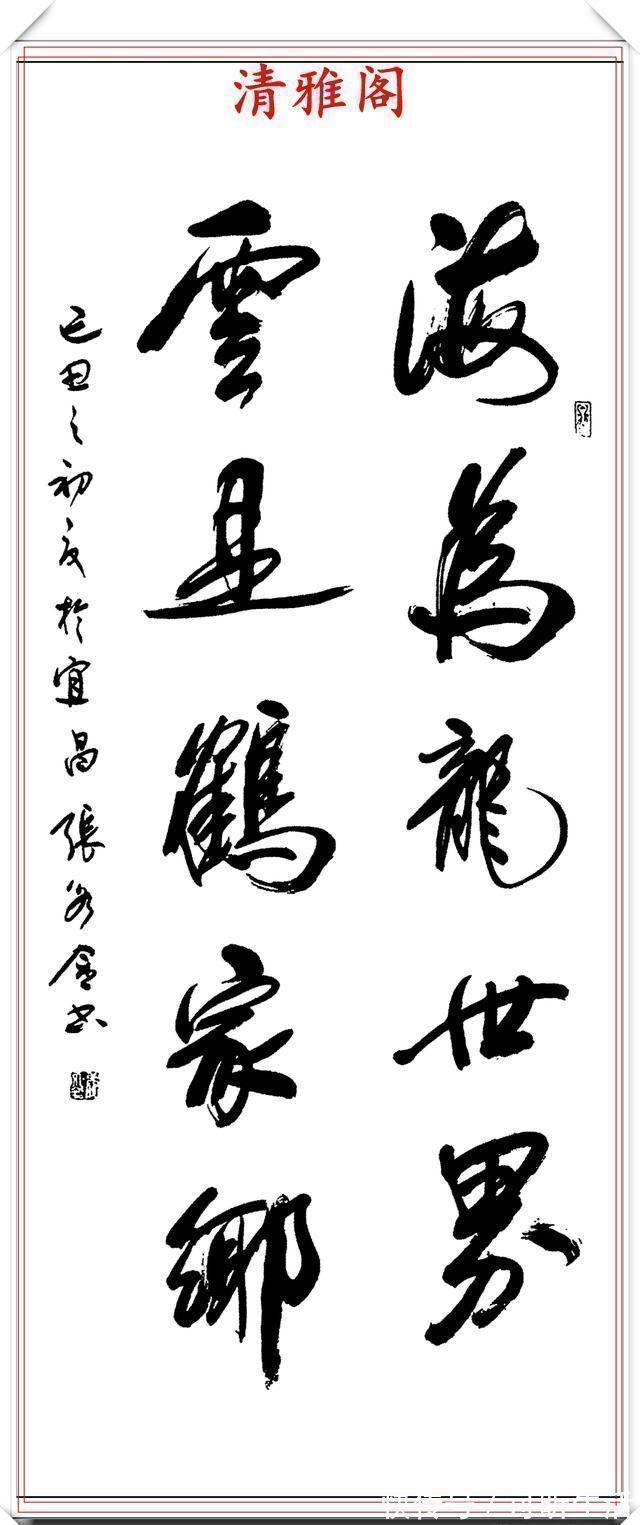 清雅阁
海為龍世界
雲是鶴家鄉
己丑之初夏於宜昌張金書